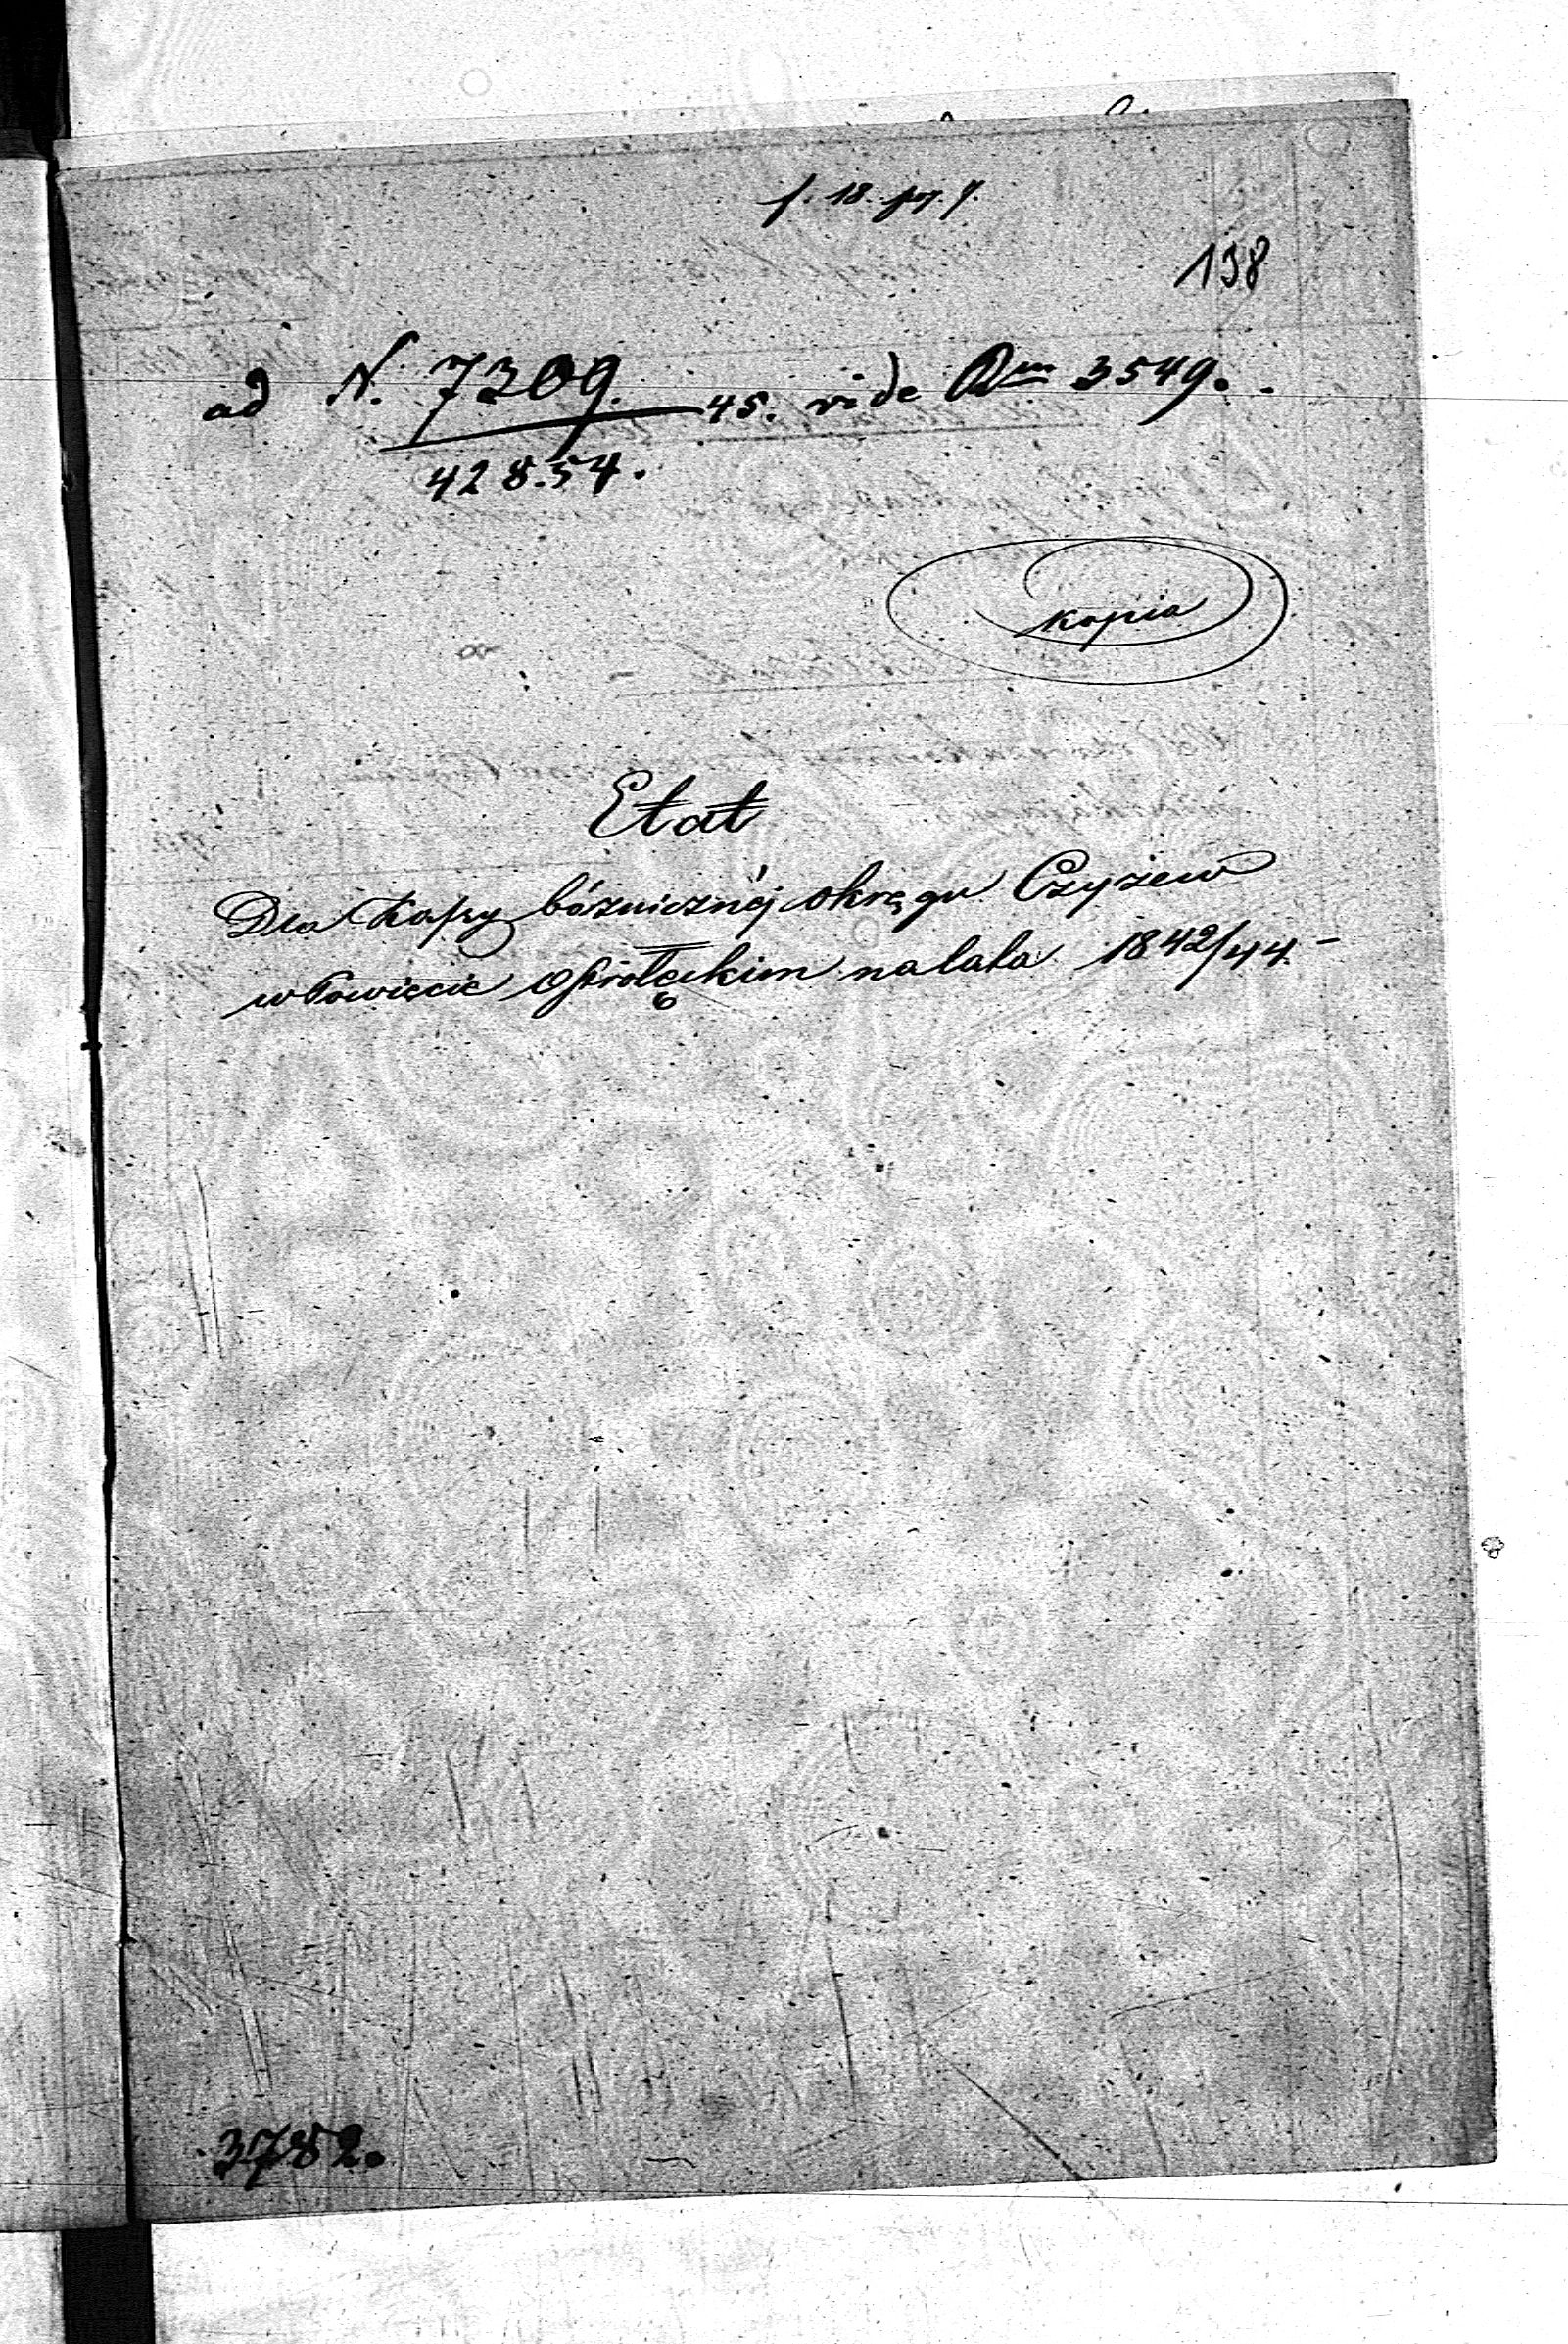 f. 18. poz. 7.
138
ad N. 7309. 45. vide Rm 3549.
42854.
Kopia
Etat
Dla Kassy bóżnicznéj okręgu Czyżew
w Powiecie Ostrołęckim na lata 1842/44 -
3782.